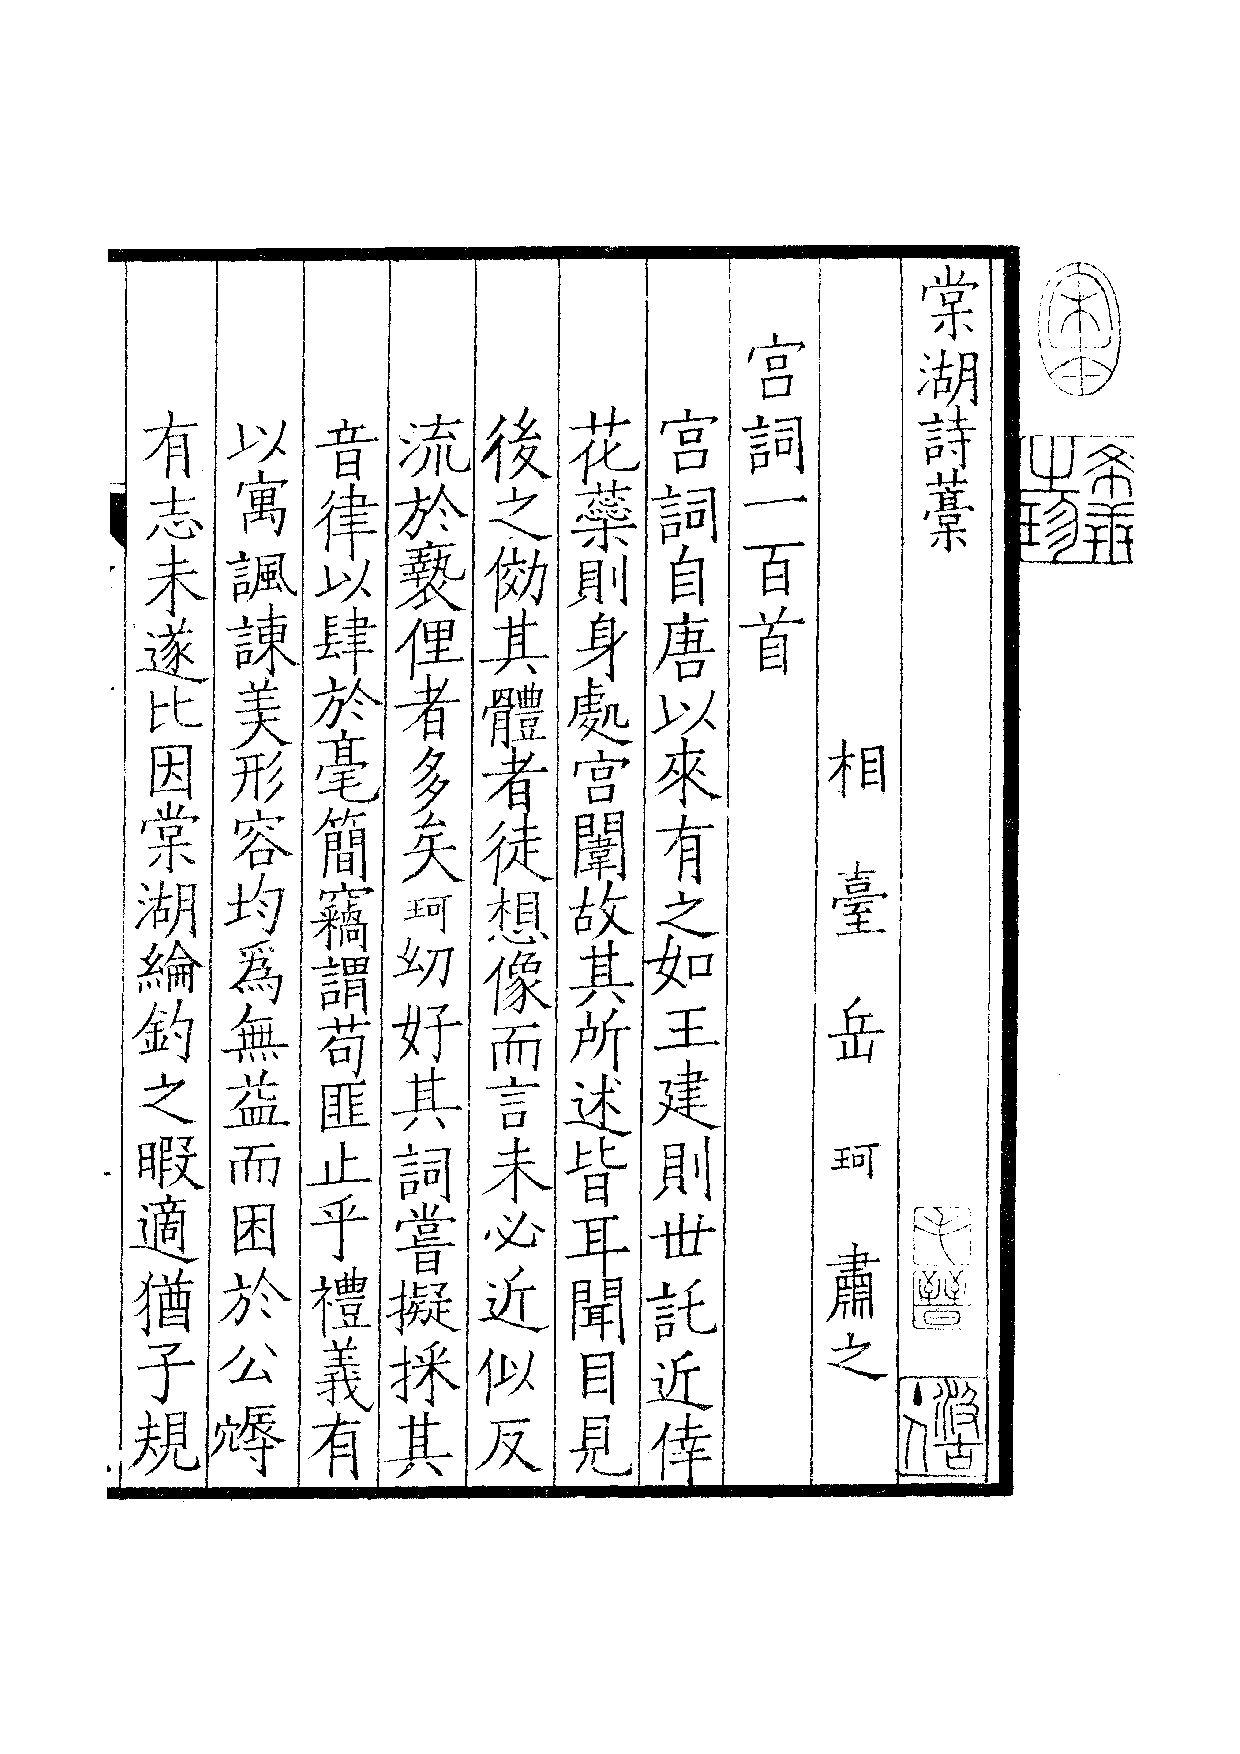 宋本
希世之珍
棠湖詩藁
毛晉
汲古主人
相臺岳珂肅之
宫詞一百首
宫詞自唐以來有之如王建則世託近倖
花蘂則身處宫闈故其所述皆耳聞目見
後之効其體者徒想像而言未必近似反
流於褻俚者多矣珂幼好其詞嘗擬採其
音律以肆於毫簡竊謂苟匪止乎禮義有
以寓諷諫美形容均爲無益而困於公
有志未遂比因棠湖綸釣之暇適猶子規